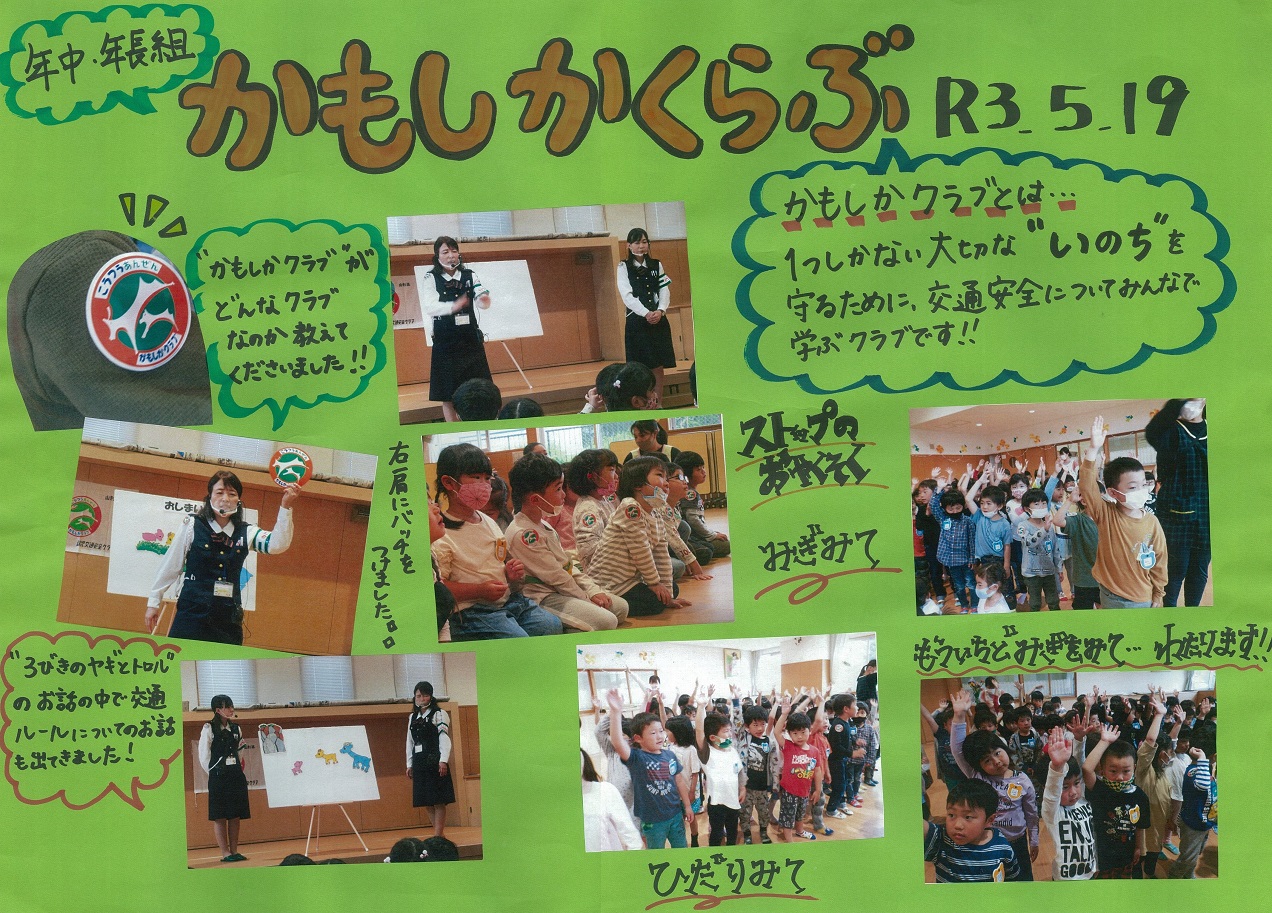 年中・年長組
かもしかくらぶ
R3.5.19
かもしかクラブとは…
1つしかない大切な"いのち"を
守るために、交通安全についてみんなで
学ぶクラブです!!
こうつうあんぜん
かもしかクラブ
"かもしかクラブ"が
どんなクラブ
なのか教えて
くださいました!!
おしまい
右肩にバッチを
つけました。。
ストップの
おやくそく
みぎみて
もういちどみぎをみて… わたります!!
"3びきのヤギとトロル"
のお話の中で交通
ルールについてのお話
も出てきました!
ひだりみて
ENJ
TALK
GOOD